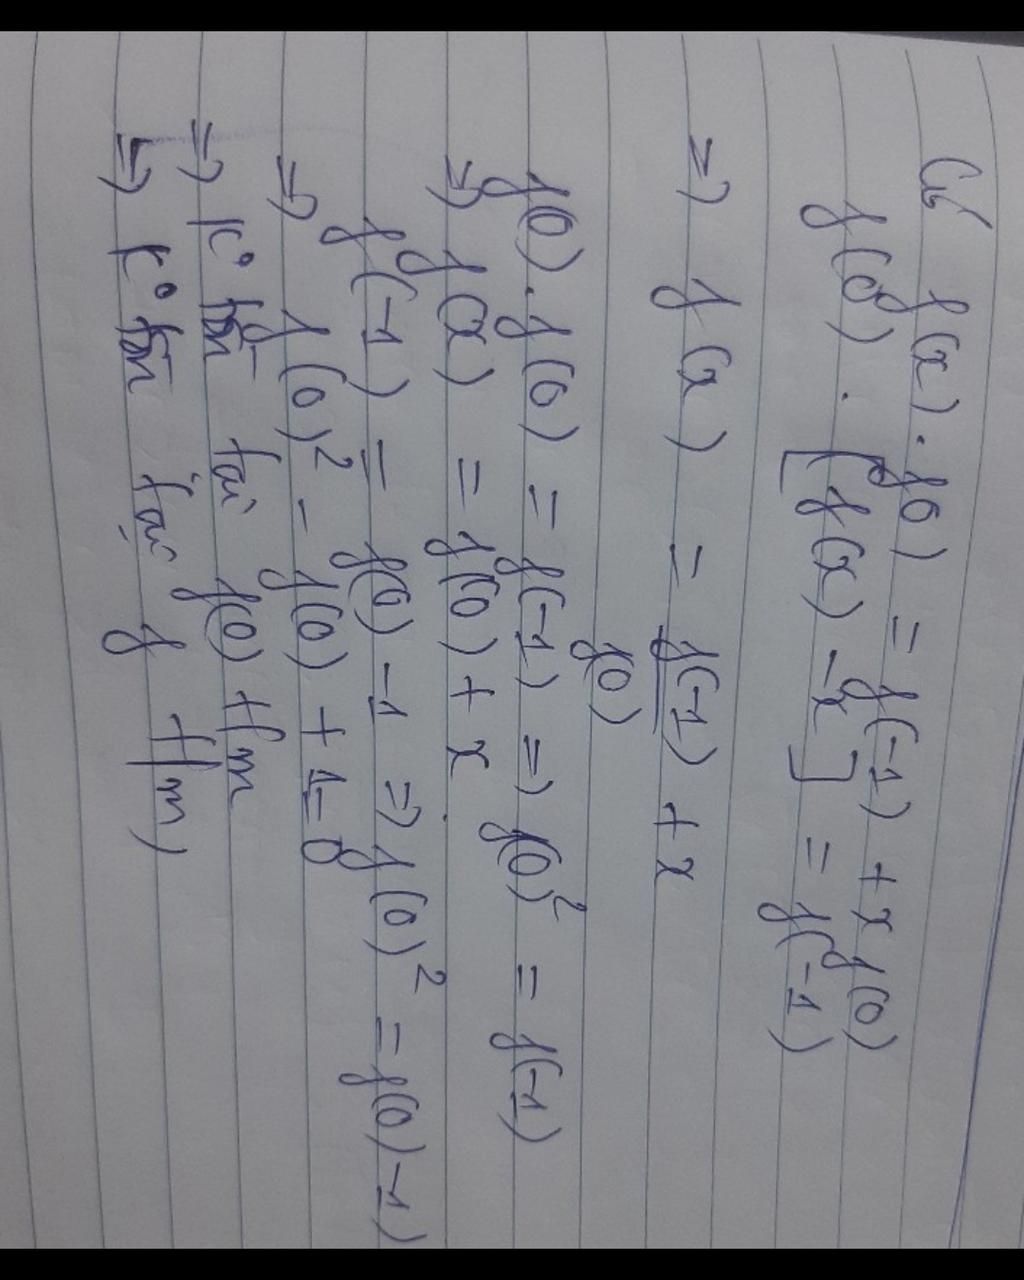 Có f(x).f(0) = f(-1) + xf(0)
f(0).[f(x) - x] = f(-1)
=> f(x) = f(-1)/f(0) + x
f(0).f(0) = f(-1) => f(0)² = f(-1)
=> f(x) = f(0) + x
f(-1) = f(0) - 1 => f(0)² = f(0) - 1)
=> f(0)² - f(0) + 1 = 0
=> k° tồn tại f(0) t/m
=> k° tồn tại f t/m)